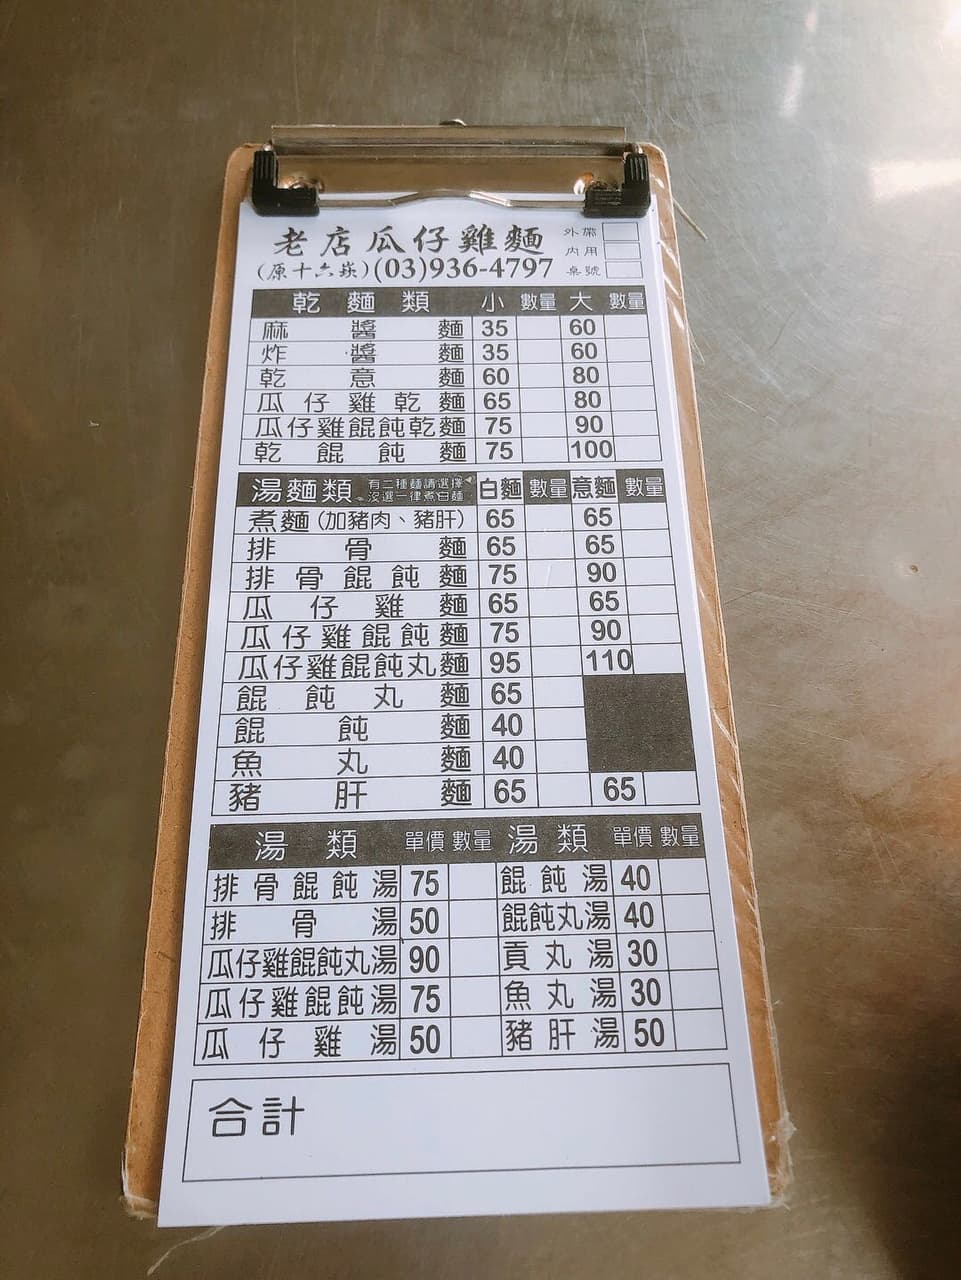 老店瓜仔雞麵 外帶
(原十六崁)(03)936-4797 內用
桌號
乾麵類 小 數量 大 數量
麻醬麵 35 60
炸醬麵 35 60
乾意麵 60 80
瓜仔雞乾麵 65 80
瓜仔雞餛飩乾麵 75 90
乾餛飩麵 75 100
湯麵類 有二種麵請選擇 白麵 數量 意麵 數量
沒選一律煮白麵
煮麵(加豬肉、豬肝) 65 65
排骨麵 65 65
排骨餛飩麵 75 90
瓜仔雞麵 65 65
瓜仔雞餛飩麵 75 90
瓜仔雞餛飩丸麵 95 110
餛飩丸麵 65
餛飩麵 40
魚丸麵 40
豬肝麵 65 65
湯類 單價 數量 湯類 單價 數量
排骨餛飩湯 75 餛飩湯 40
排骨湯 50 餛飩丸湯 40
瓜仔雞餛飩丸湯 90 貢丸湯 30
瓜仔雞餛飩湯 75 魚丸湯 30
瓜仔雞湯 50 豬肝湯 50
合計